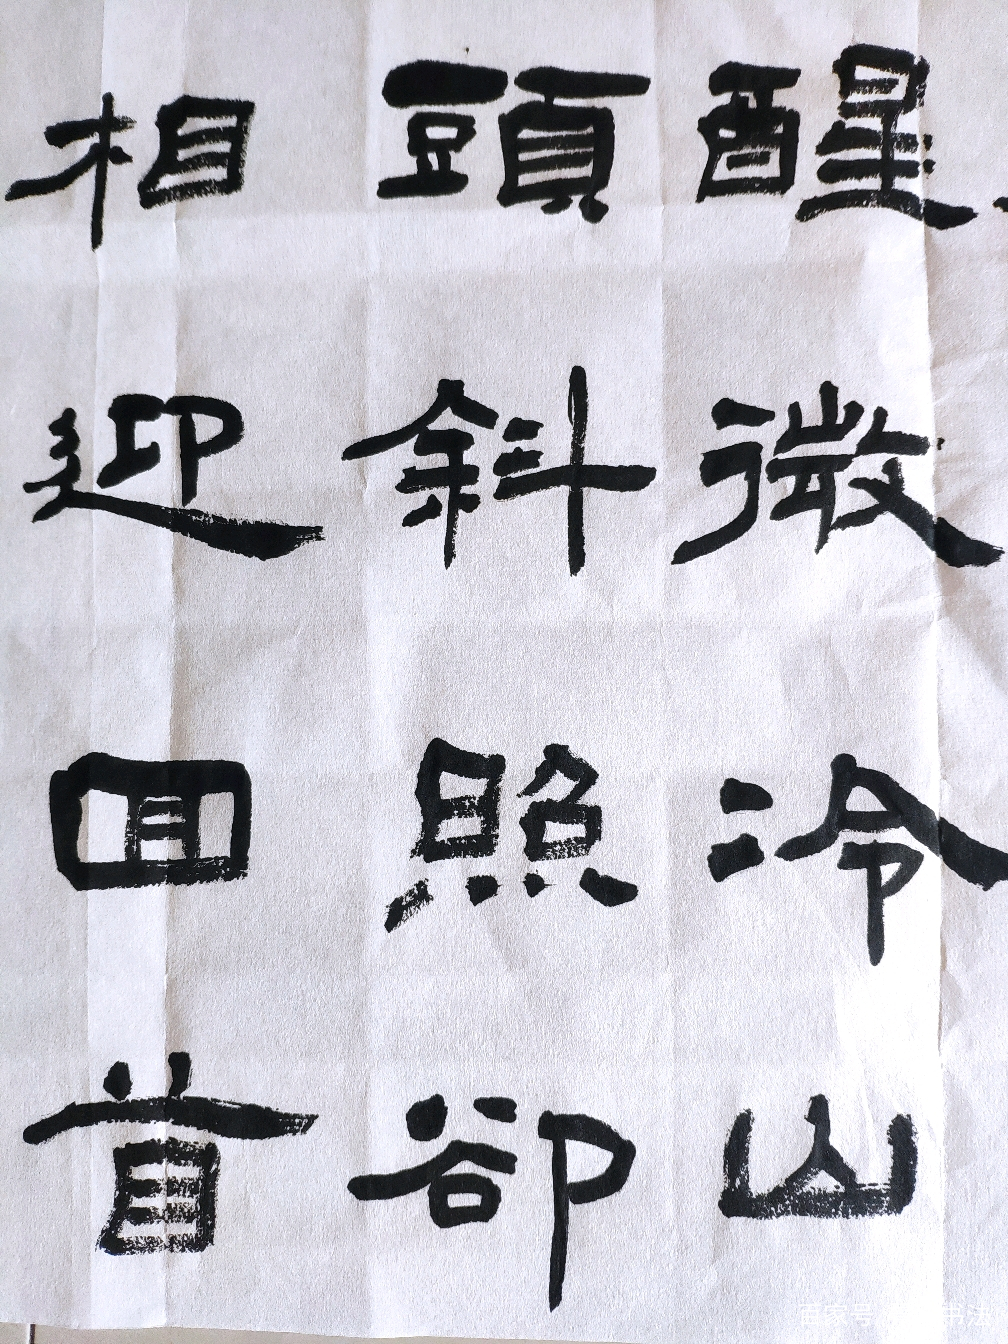 醒微冷山
頭斜照卻
相迎回首
百家号
书法